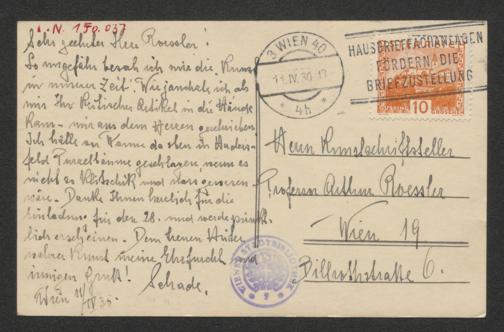 I. N. 150.037
Sehr geehrter Herr Roessler!
So ungefähr besah ich mir die Kunst
in unserer Zeit. Wie jemals, ich als
mir Ihr kritischer Artikel in die Hände
kam - mir aus dem Herzen geschrieben.
Ich hätte vor Wonne da oben in Haders-
feld Purzelbäume geschlagen, wenn es
nicht so klitschik und
wäre. Danke Ihnen herzlich für die
Einladung für den 28. und werde pünkt-
lich erscheinen. Dem treuen Hüter
wahrer Kunst meine Ehrfurcht und
innigen Gruß!
Schade.
Wien 11/IV 30.
3 WIEN 40
11.IV.30.
4h
HAUSBRIEFFACHANLAGEN
FÖRDERN DIE
BRIEFZUSTELLUNG
10
Herrn Kunstschriftsteller
Professor Arthur Roessler
Wien 19
Billrothstraße 6.
WIENER STADTBIBLIOTHEK